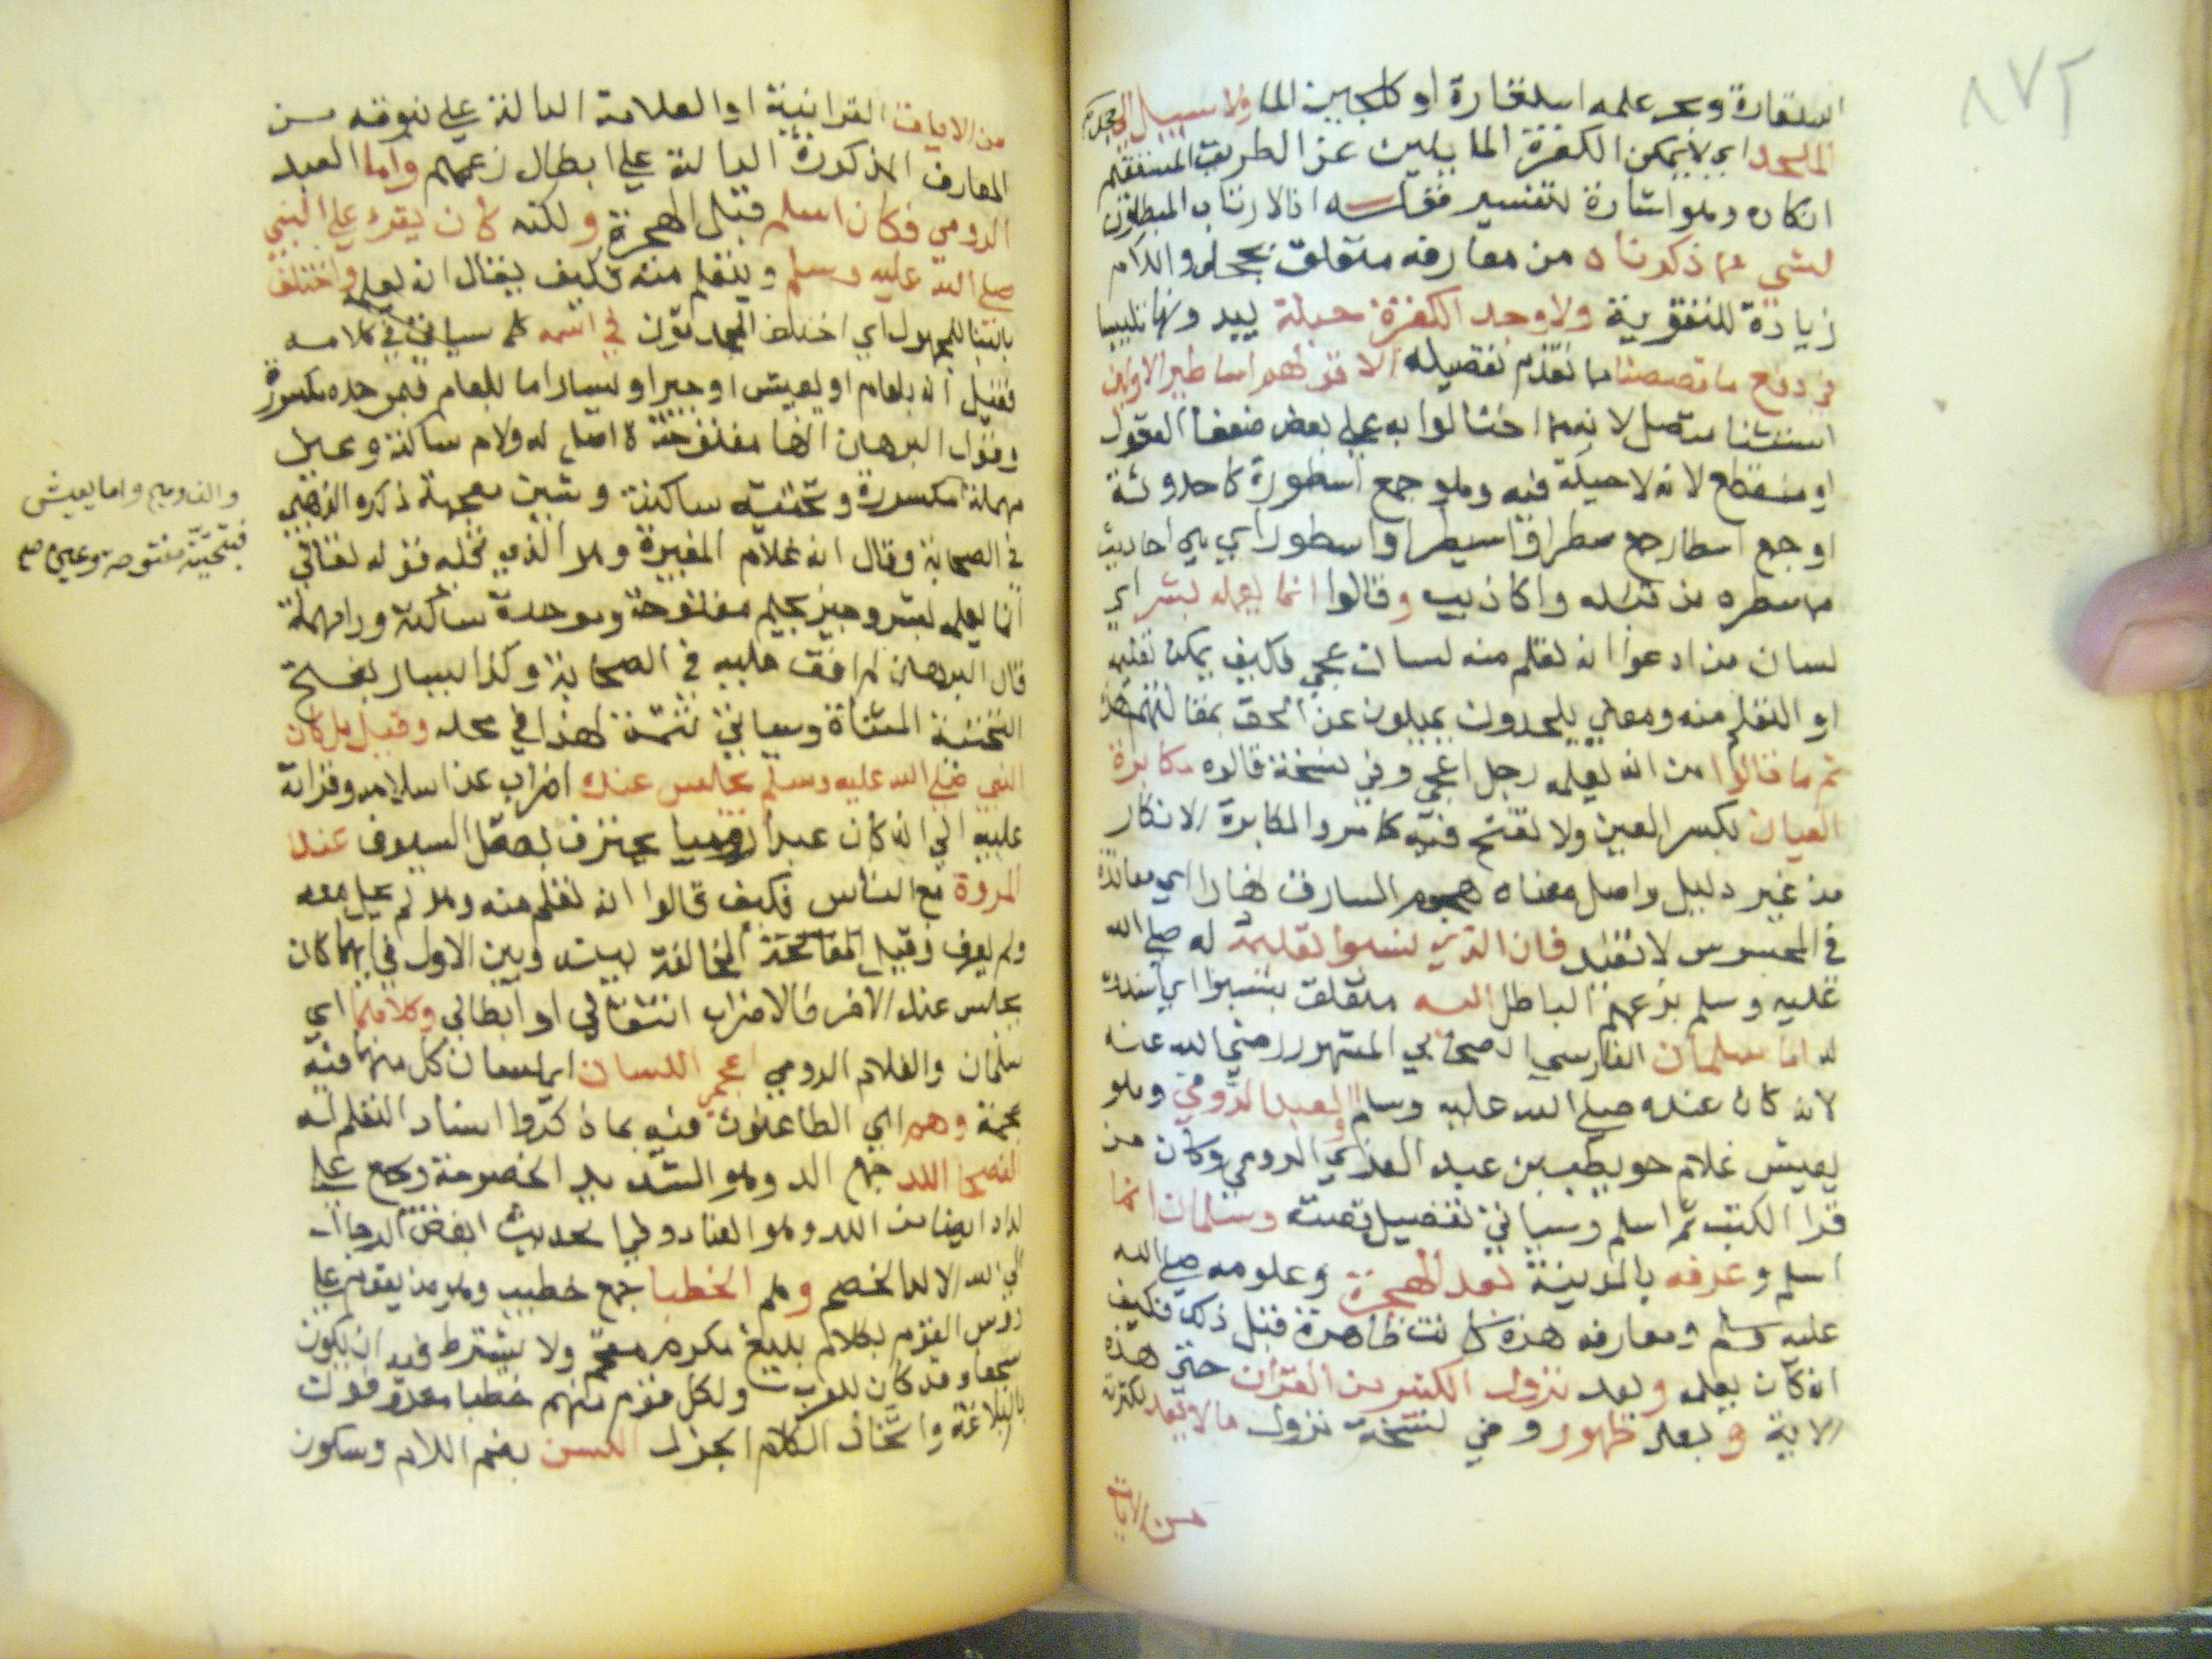 ٨٧٢
استعارة وبحر علمه استعارة او كلجين الما ولا سبيل الى جحد
الملحد اي لا يمكن الكفرة المايلين عن الطريق المستقيم
انكاره وهو اشارة لتفسير قوله اذا لارتاب المبطلون
لشي مما ذكرناه من معارفه متعلق بجحد واللام
زيادة للتقوية ولا وجد الكفرة حيلة
في دفع ما قصصنا مما تقدم تفصيله الا قولهم اساطير الاولين
استثنا متصل لانه مما احتالوا به على بعض ضعفا العقول
او منقطع لانه لا حيلة فيه وهو جمع اسطورة كاحدوثة
او جمع اسطار جمع سطر او اسيطر او اسطور اي هي احاديث
مما سطره من قبله واكاذيب وقالوا انما يعلمه بشر اي
لسان من ادعوا انه تعلم منه لسان عجمي فكيف يمكن تعليمه
او التعلم منه ومعنى يلحدون يميلون عن الحق بمقالتهم هذه
ثم ما قالوا من انه يعلمه رجل اعجمي وفي نسخة قالوه مكابرة
العيان بكسر العين ولا تفتح فيه كما مر والمكابرة الانكار
من غير دليل واصل معناه هجوم السارق نهارا اي معاندة
في المحسوس لا تفيد فان الذي نسبوا تعليمه له صلى الله
عليه وسلم بزعمهم الباطل اليه متعلق بنسبوا اي اسندوه
له اما سلمان الفارسي الصحابي المشهور رضي الله عنه
لانه كان عنده صلى الله عليه وسلم او العبد الرومي وهو
يعيش غلام حويطب بن عبد العزى الرومي وكان من
قرا الكتب ثم اسلم وسياتي تفصيل قصته وسلمان انما
اسلم وعرفه بالمدينة بعد الهجرة وعلومه صلى الله
عليه وسلم ومعارفه هذه كانت ظاهرة قبل ذلك فكيف
انه كان يعلمه وبعد نزول الكثير من القران حتى هذه
الاية وبعد ظهور وفي نسخة نزول ما لا يعد لكثرته
من الايات
من الايات القرانية او العلامة الدالة على نبوته من
المعارف المذكورة الدالة على ابطال زعمهم واما العبد
الرومي فكان اسلم قبل الهجرة ولكنه كان يقرء على النبي
صلى الله عليه وسلم ويتعلم منه فكيف يقال انه يعلمه واختلف
بالبنا للمجهول اي اختلف المحدثون في اسمه كما سياتي في كلامه
فقيل انه بلعام او يعيش او جبر او يسار اما بلعام فبموحدة مكسورة
وقول البرهان انها مفتوحة لا اصل له ولام ساكنة وعين
مهملة مكسورة وتحتية ساكنة وشين معجمة ذكره الذهبي
في الصحابة وقال انه غلام المغيرة وهو الذي نزل فيه قوله تعالى
انما يعلمه بشر وجبر بجيم مفتوحة وموحدة ساكنة ورا مهملة
قال البرهان لم اقف عليه في الصحابة وكذا يسار بفتح
التحتية المثناة وسياتي تتمة لهذا في محله وقيل بل كان
النبي صلى الله عليه وسلم يجلس عنده اضراب عن اسلامه وقراته
عليه الى انه كان عبدا روميا يحترف بصقل السيوف عند
المروة مع الناس فكيف قالوا انه تعلم منه وهو لم يخل معه
ولم يعرف وقيل المخالفة بينه وبين الاول في ايهما كان
يجلس عند الاخر فالاضراب انتقالي او ابطالي وكلاهما اي
سلمان والغلام الرومي اعجمي اللسان اي لسان كل منهما فيه
عجمة وهم اي الطاعنون فيه بما ذكروا اسناد التعلم له
الفصحا اللد جمع الد وهو الشديد الخصومة وجمع على
لداد ايضا من اللدد وهو العناد وفي الحديث ابغض الرجال
الى الله الالد الخصم وهم الخطبا جمع خطيب وهو من يقوم على
روس القوم بكلام بليغ مكرم مفخم ولا يشترط فيه ان يكون
سجعا وقد كان للعرب ولكل قوم منهم خطبا معروفون
بالبلاغة واتخاذ الكلام الجزل اللسن بضم اللام وسكون
واما يعيش
فبتحتية مفتوحة وعين صح